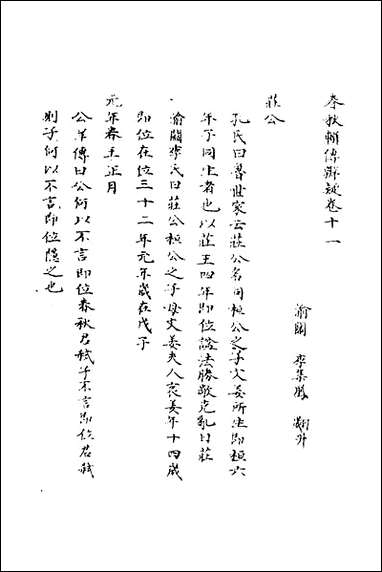 春秋輯傳辨疑卷十一
渝關 李集鳳 翽升
莊公
孔氏曰魯世家云莊公名同桓公之子文姜所生即桓六
年子同生者也以莊王四年即位諡法勝敵克亂曰莊
渝關李氏曰莊公桓公之子母文姜夫人哀姜年十四歲
即位在位三十二年元年歲在戊子
元年春王正月
公羊傳曰公何以不言即位春秋君弒子不言即位君弒
則子何以不言即位隱之也